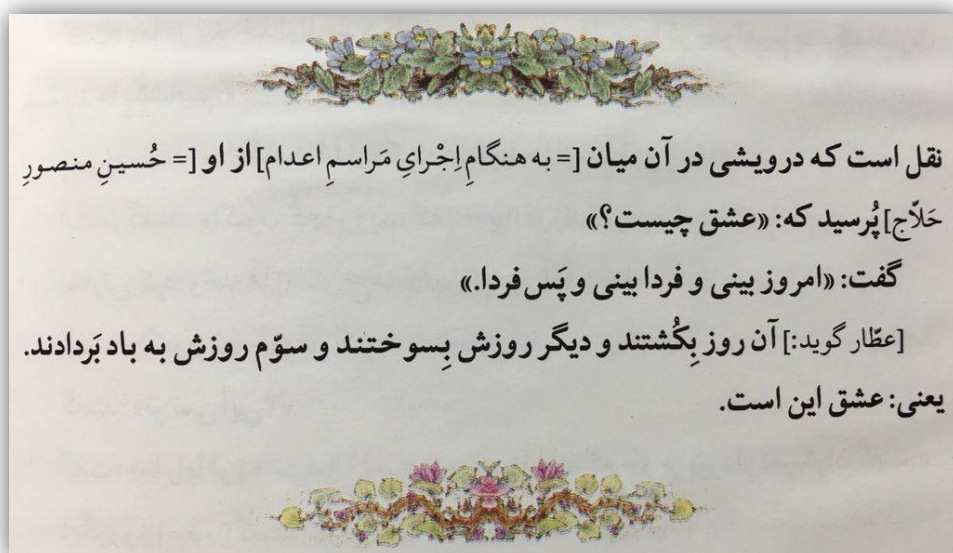 نقل است که درویشی در آن میان [= به هنگامِ اِجْرایِ مَراسمِ اعدام] از او [= حُسینِ منصورِ
حَلّاج] پُرسید که: «عشق چیست؟»
گفت: «امروز بینی و فردا بینی و پَس فردا.»
[عطّار گوید:] آن روز بِکُشتند و دیگر روزش بِسوختند و سوّم روزش به باد بَردادند.
یعنی: عشق این است.